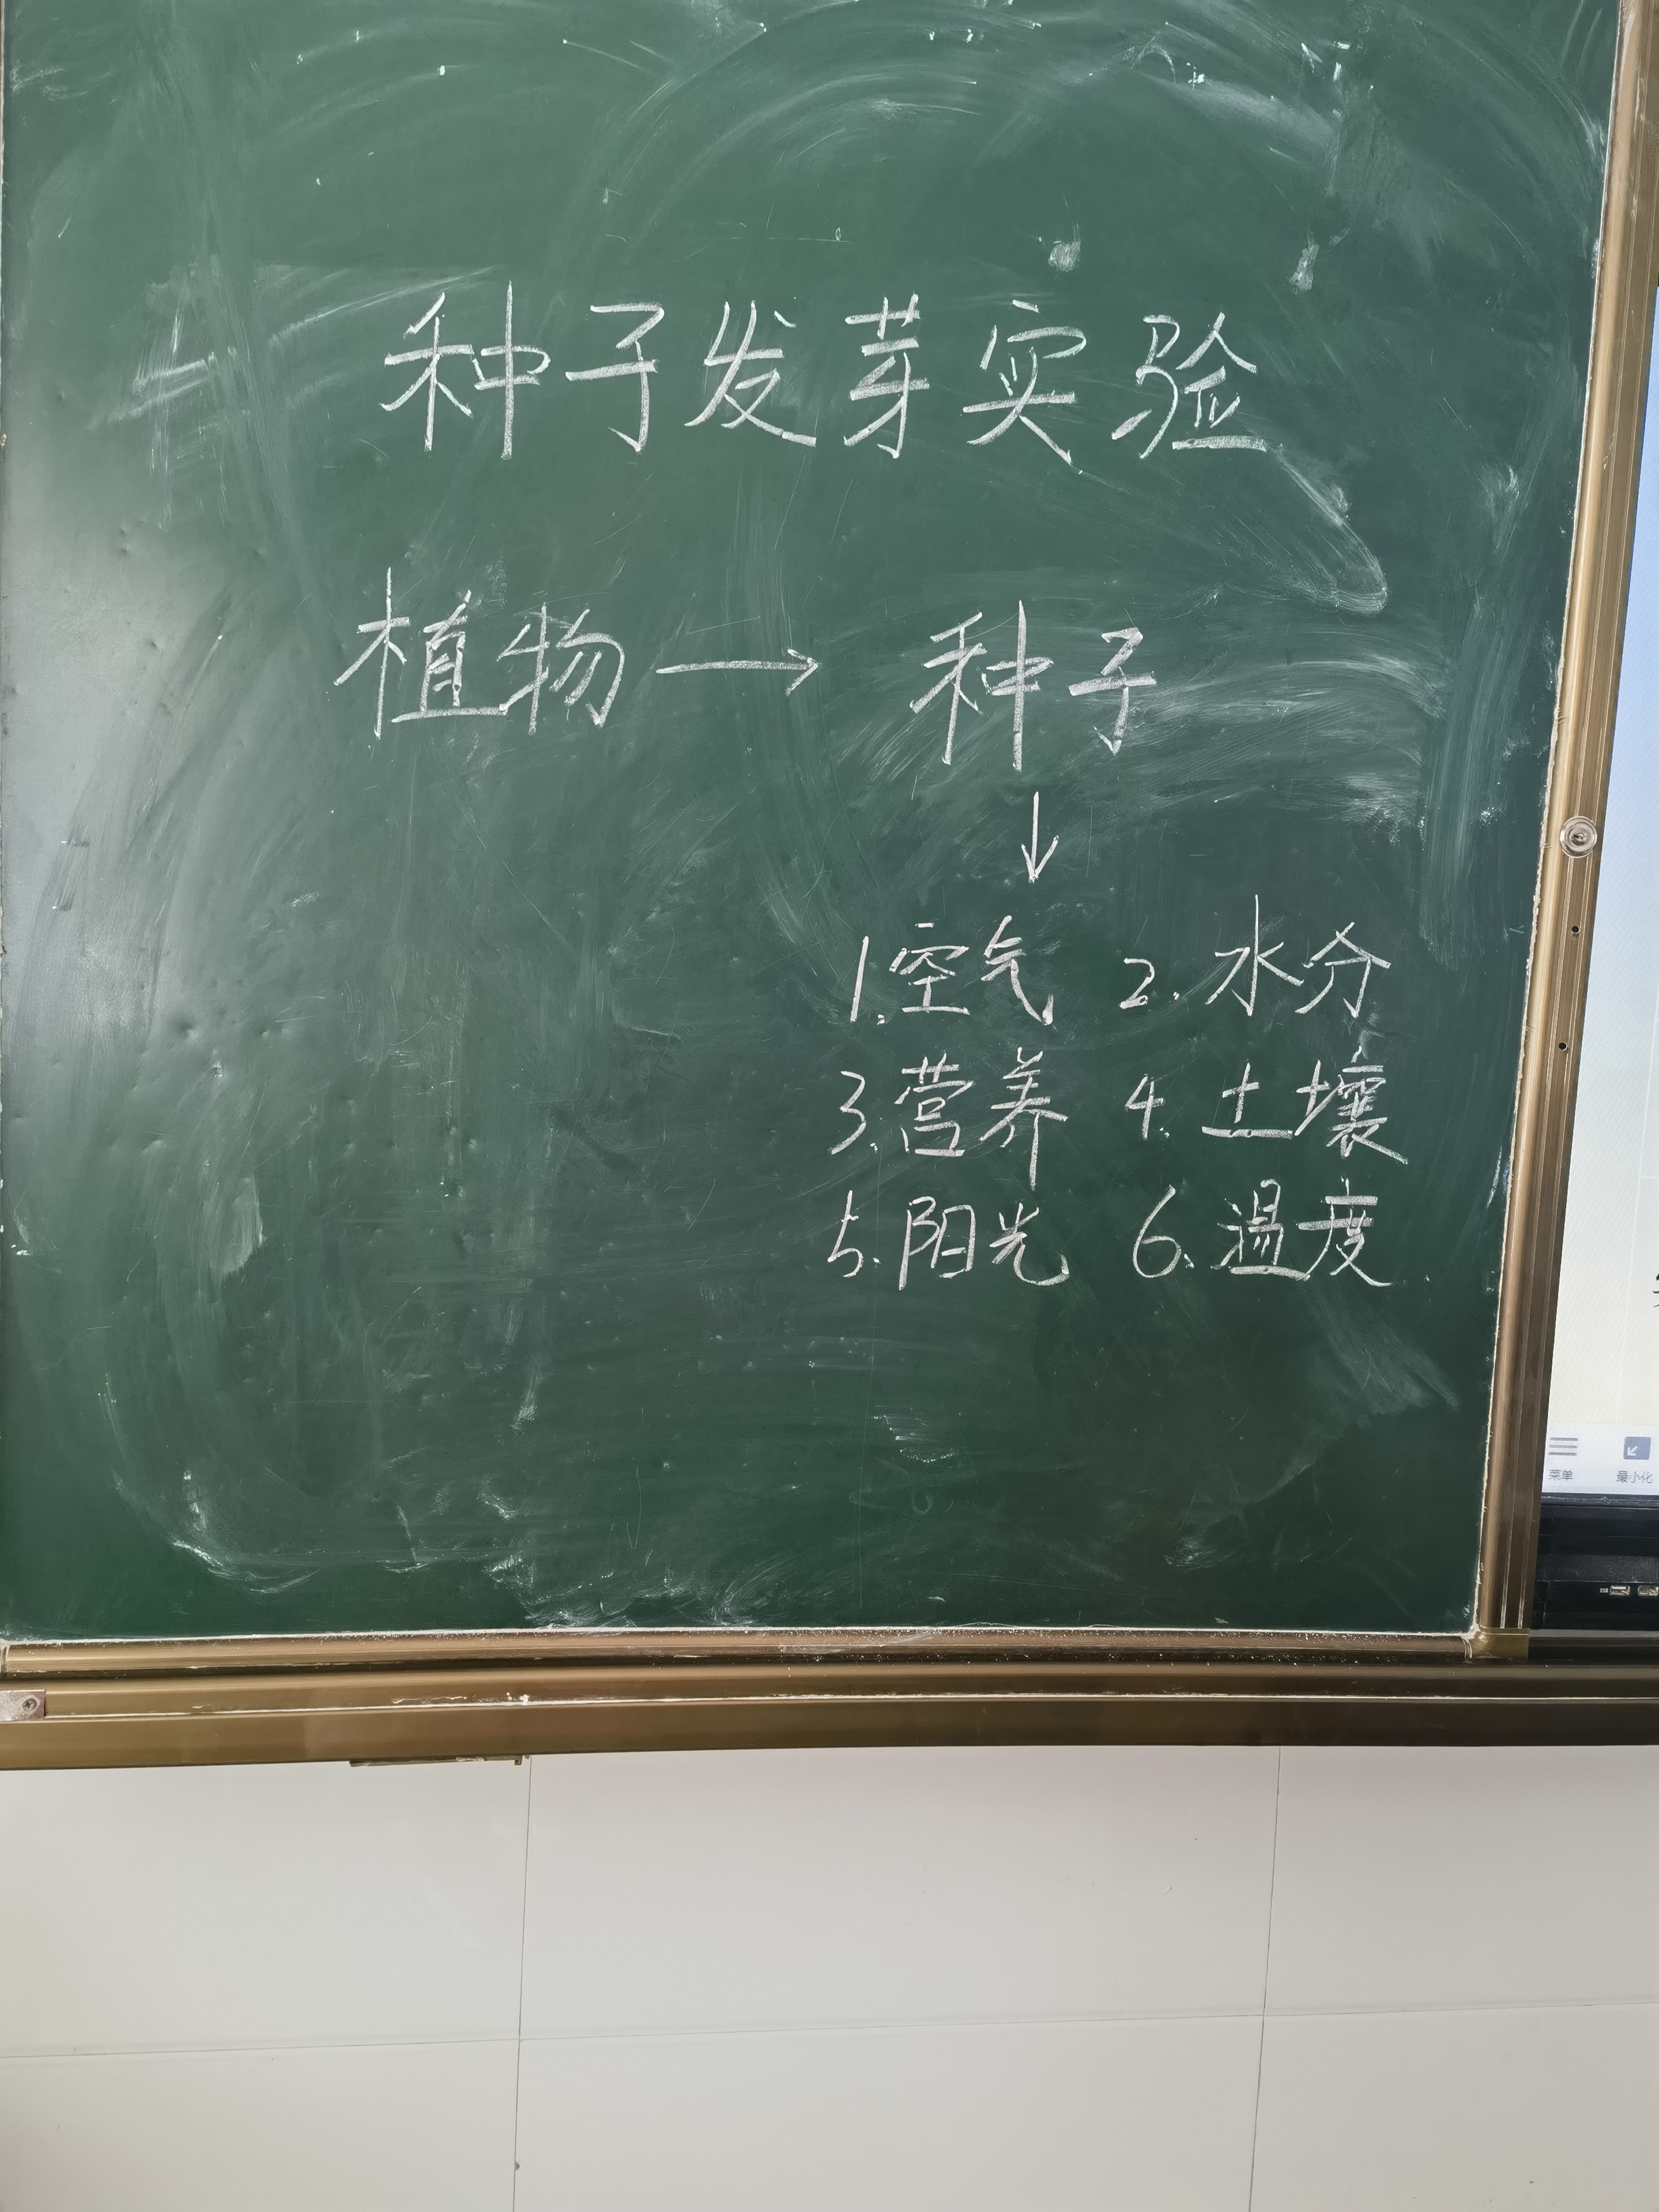 种子发芽实验
植物→种子
↓
1.空气 2.水分
3.营养 4.土壤
5.阳光 6.温度
菜单 最小化
USB